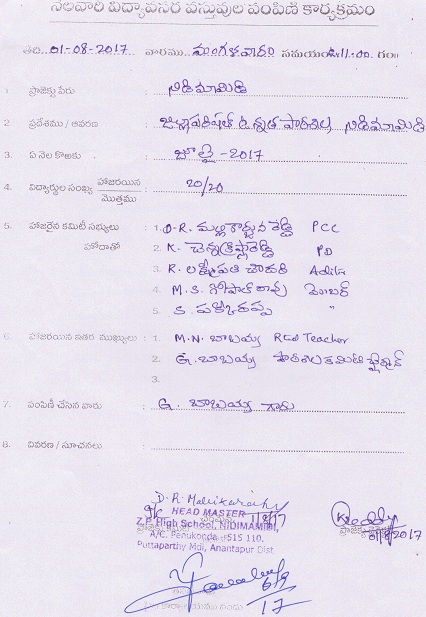 నెలవారి విద్యావసర వస్తువుల పంపిణి కార్యక్రమం
తేది..01-08-2017 వారము.. మంగళవారం సమయం ఉ.11-00. గం॥
1. ప్రాజెక్టు పేరు : నిడిమామిడి
2. ప్రదేశము / ఆవరణ : జిల్లాపరిషత్ ఉన్నత పాఠశాల నిడిమామిడి
3. ఏ నెల కొఱకు : జూలై -2017
4. విద్యార్థుల సంఖ్య హాజరయిన / మొత్తము : 20/20
5. హాజరైన కమిటీ సభ్యులు : 1. D.R. మల్లికార్జున రెడ్డి PCC
హోదాతో 2. K. చెన్నక్రిష్ణారెడ్డి PD
3. R. లక్ష్మీపతి చౌదరి
4. M.S. గోపాల్ రావు మెంబర్
5. "
6. హాజరయిన ఇతర ముఖ్యులు : 1. M.N. బాబయ్య Rtd Teacher
2. G. బాబయ్య పాఠశాల కమిటి చైర్మన్
3.
7. పంపిణి చేసిన వారు : G. బాబయ్య గారు
8. వివరణ / సూచనలు :
D.R Mallikarjuna
HEAD MASTER 1/8/17
Z.P. High School, NIDIMAMIDI,
A/C. Penukonda - 515 110.
Puttaparthy Mdl, Anantapur Dist
KReddy
01/8/2017
6/9
17